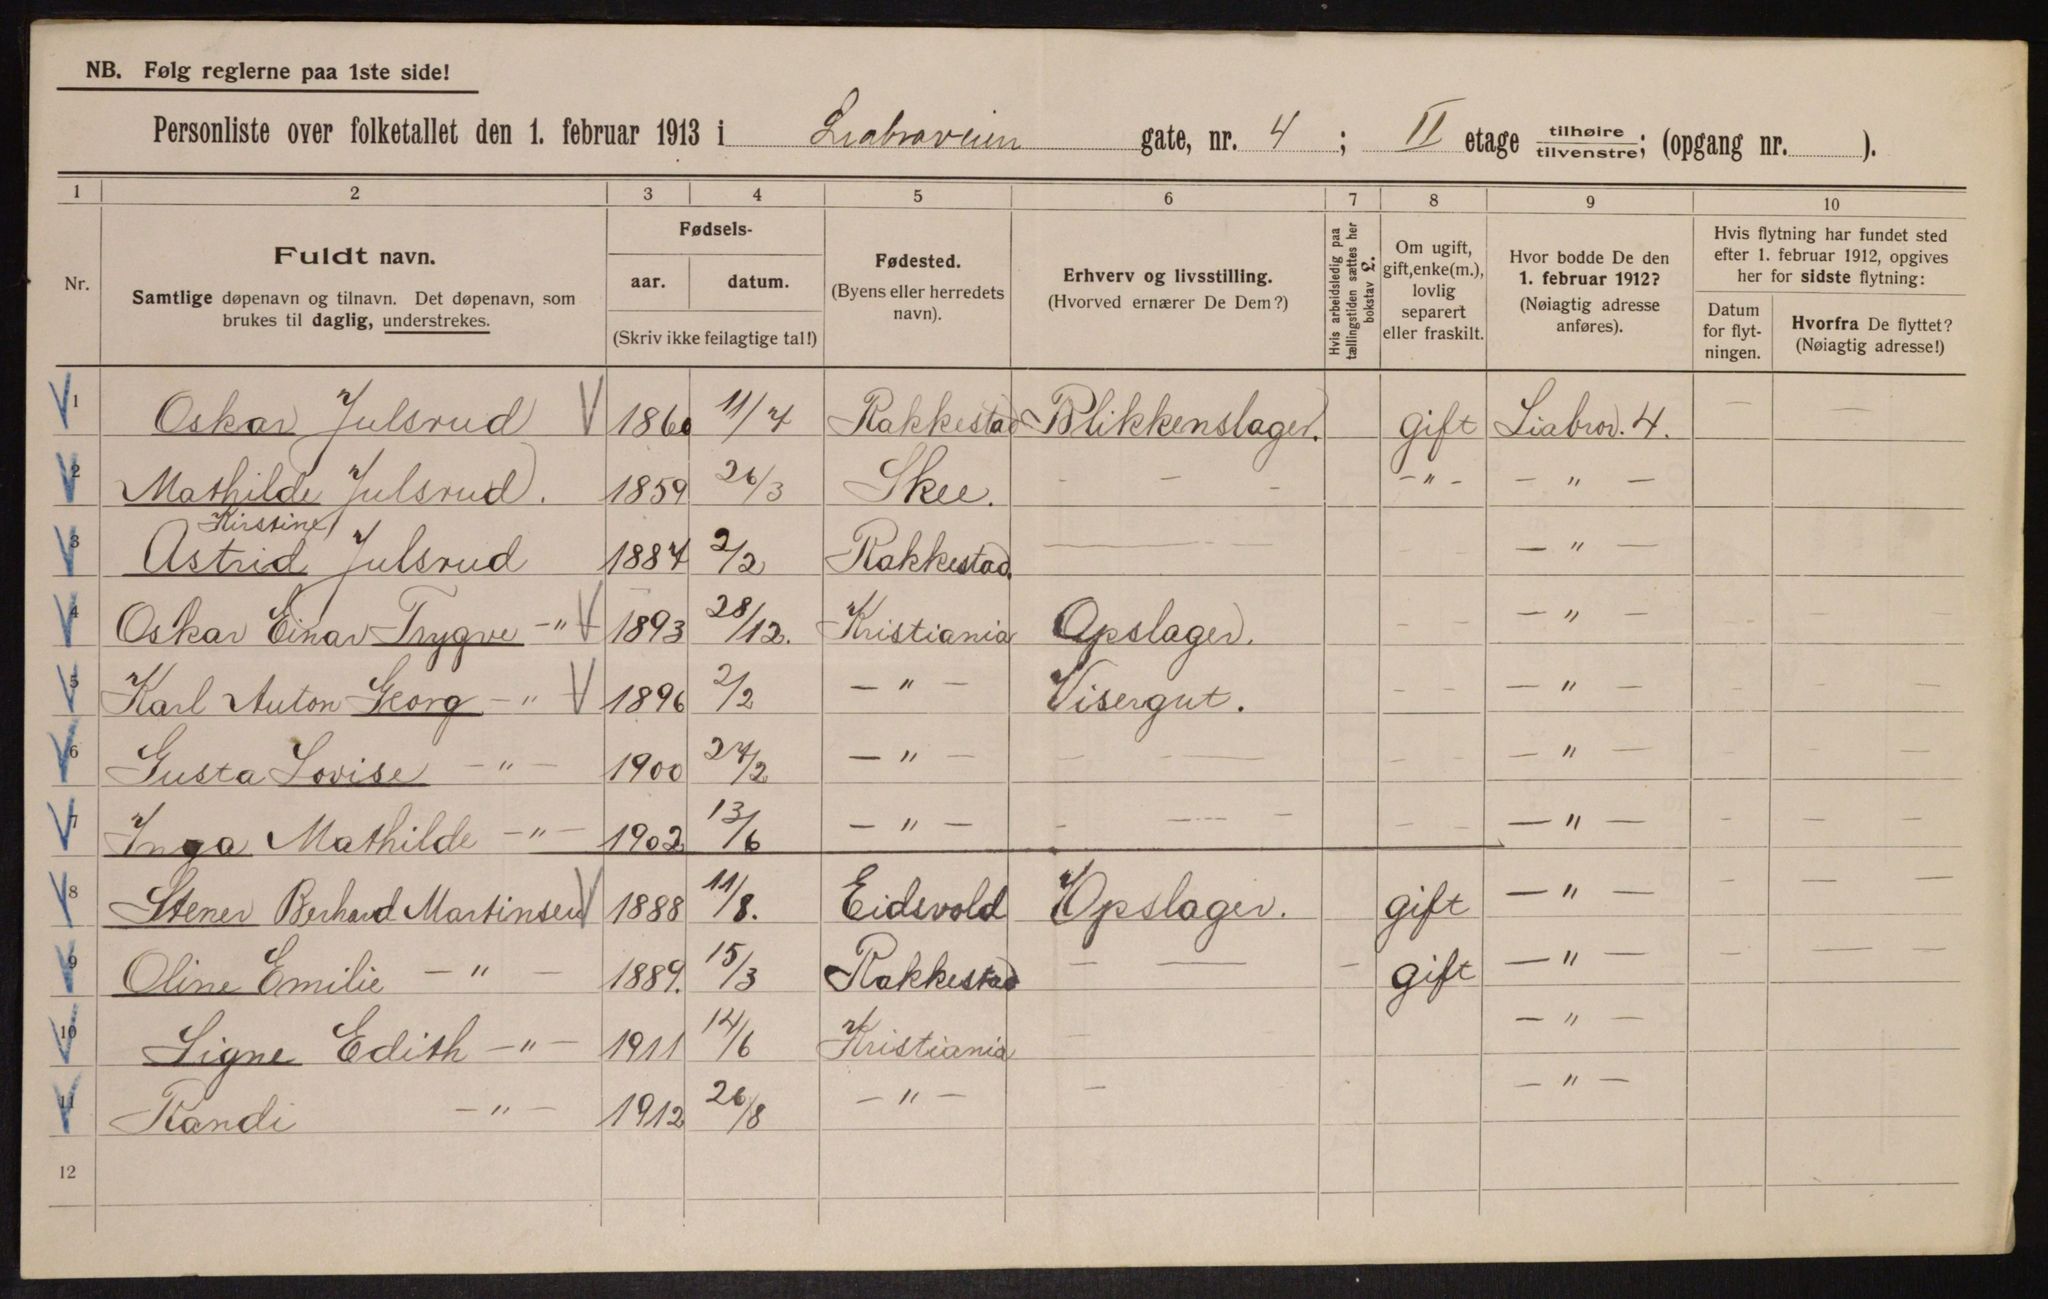 NB. Følg reglerne paa 1ste side!
Personliste over folketallet den 1. februar 1913 i Liabroveien gate, nr. 4 ; II etage tilhøire / tilvenstre; (opgang nr. ).
1 2 3 4 5 6 7 8 9 10
Nr.
Fuldt navn.
Samtlige døpenavn og tilnavn. Det døpenavn, som
brukes til daglig, understrekes.
Fødsels-
aar. datum.
(Skriv ikke feilagtige tal!)
Fødested.
(Byens eller herredets
navn).
Erhverv og livsstilling.
(Hvorved ernærer De Dem?)
Hvis arbeidsledig paa
tællingstiden sættes her
bokstav £.
Om ugift,
gift, enke(m.),
lovlig
separert
eller fraskilt.
Hvor bodde De den
1. februar 1912?
(Nøiagtig adresse
anføres).
Hvis flytning har fundet sted
efter 1. februar 1912, opgives
her for sidste flytning:
Datum
for flyt-
ningen.
Hvorfra De flyttet?
(Nøiagtig adresse!)
1 Oskar Julsrud V 1860 11/4 Rakkestad Blikkenslager. gift Liabrov. 4. — —
2 Mathilde Julsrud. 1859 26/3 Skee. - - - -"- - " -
Kirstine
3 Astrid Julsrud 1884 2/2 Rakkestad. — - - - " -
4 Oskar Einar Trygve -"- V 1893 28/12. Kristiania Opslager. - - - " -
5 Karl Anton Georg - " - V 1896 2/2 - " - Visergut. - - - " -
6 Gusta Lovise - " - 1900 24/2 - " - - — - - - " -
7 Inga Mathilde - " - 1902 13/6 - " - - — - - - - " -
8 Stener Berhard Martinsen V 1888 11/8. Eidsvold Opslager. gift - " -
9 Oline Emilie - " - 1889. 15/3 Rakkestad - — - gift - " -
10 Signe Edith - " - 1911 14/6 Kristiania - - " -
11 Randi - " - 1912 26/8 - " - - - " -
12